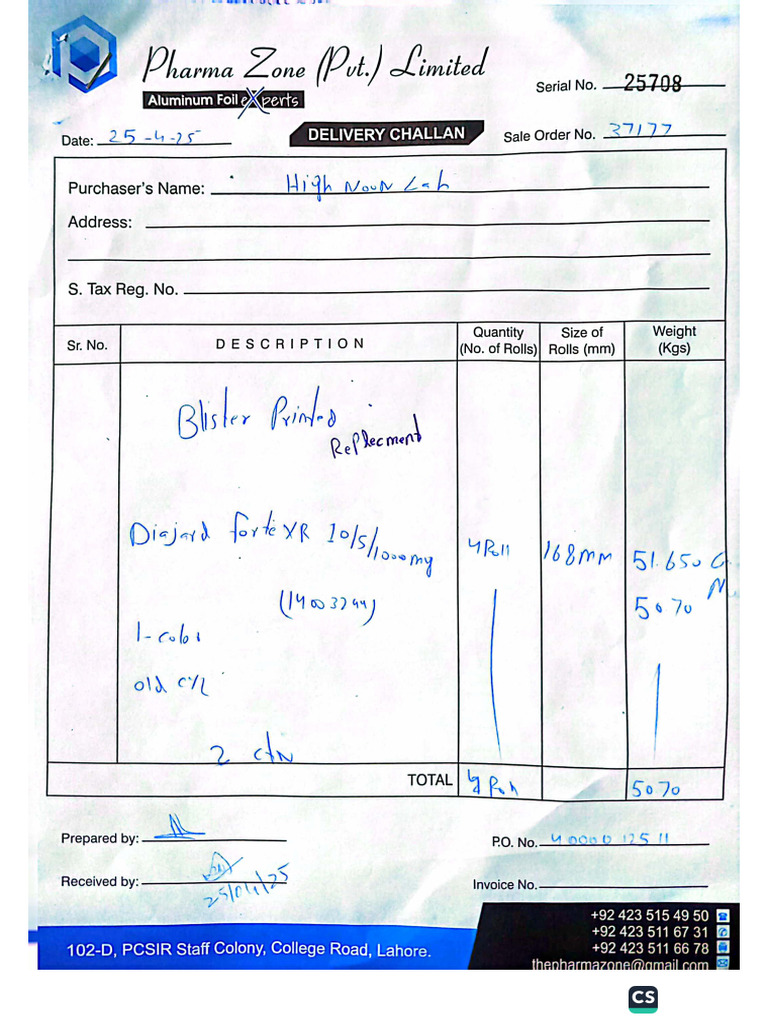 Pharma Zone (Pvt.) Limited
Aluminum Foil eXperts
Serial No. 25708
Date: 25-4-25
DELIVERY CHALLAN
Sale Order No. 37177
Purchaser's Name: High NOON Lab
Address:
S. Tax Reg. No.
Sr. No. DESCRIPTION Quantity (No. of Rolls) Size of Rolls (mm) Weight (Kgs)
Blister Printed
Replecment
Diajard forte XR 10/5/1000mg 4 Roll 168mm 51.650 G
(14003244) N
5070
1-color
old cyl
2 ctn
TOTAL 4 Roll 5070
Prepared by:
P.O. No. 4000012511
Received by: 25/04/25
Invoice No.
+92 423 515 49 50
+92 423 511 67 31
+92 423 511 66 78
thepharmazone@gmail.com
102-D, PCSIR Staff Colony, College Road, Lahore.
CS